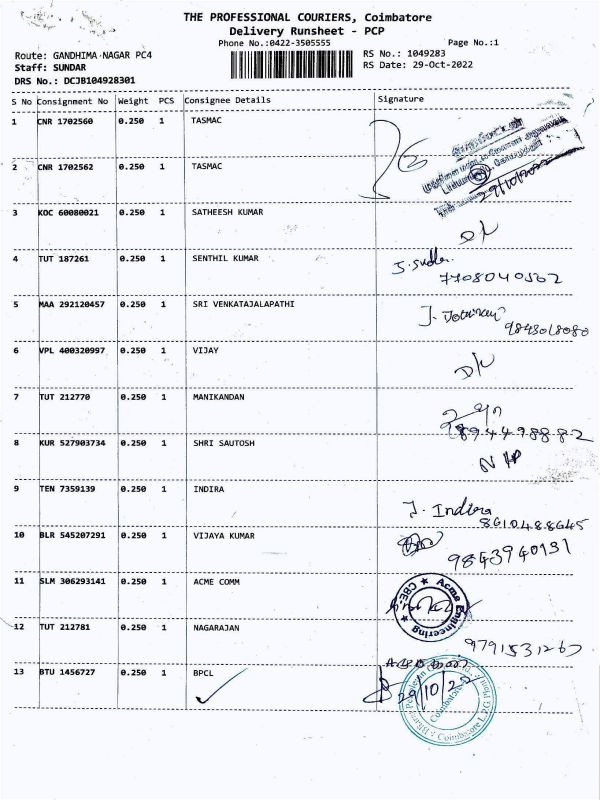 THE PROFESSIONAL COURIERS, Coimbatore
Delivery Runsheet - PCP
Phone No.:0422-3505555
Page No.:1
Route: GANDHIMA NAGAR PC4
RS No.: 1049283
Staff: SUNDAR
RS Date: 29-Oct-2022
DRS No.: DCJB104928301
S No Consignment No Weight PCS Consignee Details Signature
1 CNR 1702560 0.250 1 TASMAC
2 CNR 1702562 0.250 1 TASMAC
29/10/2022
3 KOC 60080021 0.250 1 SATHEESH KUMAR
D/L
4 TUT 187261 0.250 1 SENTHIL KUMAR
7708040562
5 MAA 292120457 0.250 1 SRI VENKATAJALAPATHI
9843018080
6 VPL 400320997 0.250 1 VIJAY
D/L
7 TUT 212770 0.250 1 MANIKANDAN
9894498882
8 KUR 527903734 0.250 1 SHRI SAUTOSH
N/P
9 TEN 7359139 0.250 1 INDIRA
J. Indira
8610488645
10 BLR 545207291 0.250 1 VIJAYA KUMAR
9843940131
11 SLM 306293141 0.250 1 ACME COMM
Acme Engineering ★ CBE- ★
12 TUT 212781 0.250 1 NAGARAJAN
9791531267
13 BTU 1456727 0.250 1 BPCL
29/10/22
Coimbatore